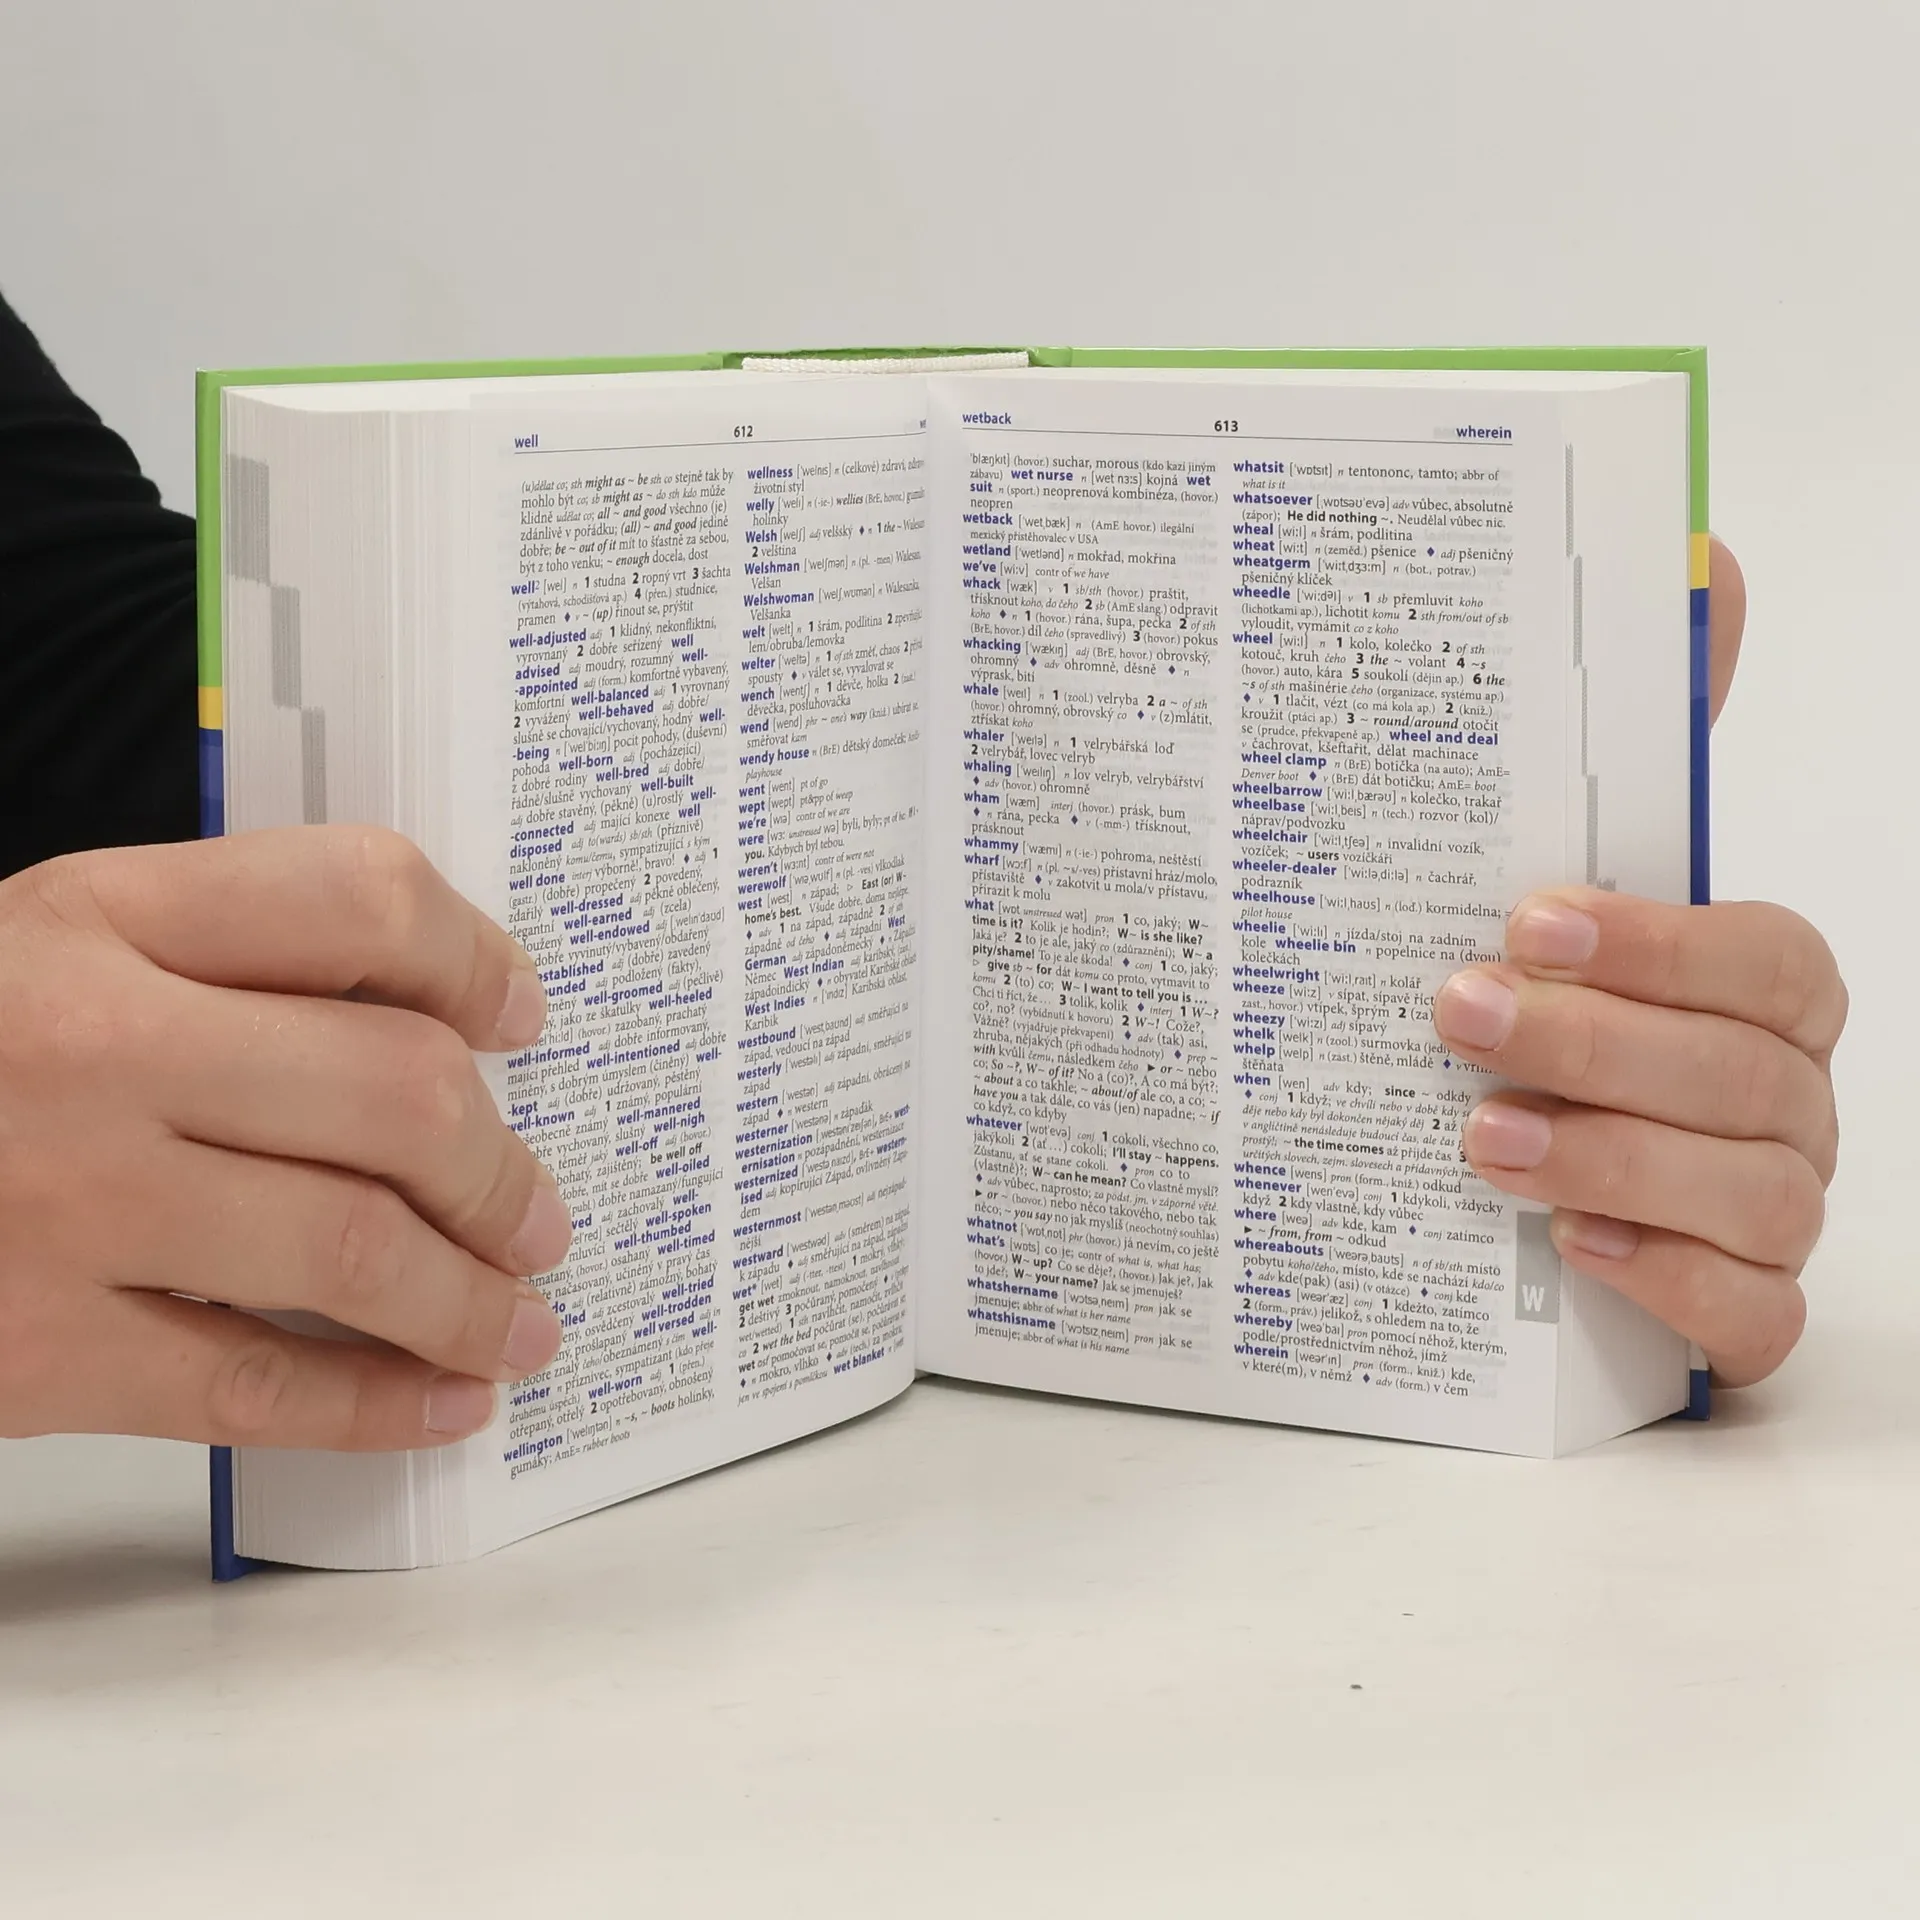 well
612
(u)dělat co; sth might as ~ be sth co stejně tak by
mohlo být co; sb might as ~ do sth kdo může
klidně udělat co; all ~ and good všechno (je)
zdánlivě v pořádku; (all) ~ and good jedině
dobře; be ~ out of it mít to šťastně za sebou,
být z toho venku; ~ enough docela, dost
well² [wel] n 1 studna 2 ropný vrt 3 šachta
(výtahová, schodišťová ap.) 4 (přen.) studnice,
pramen ♦ v ~ (up) řinout se, prýštit
well-adjusted adj 1 klidný, nekonfliktní,
vyrovnaný 2 dobře seřízený well
advised adj moudrý, rozumný well-
-appointed adj (form.) komfortně vybavený,
komfortní well-balanced adj 1 vyrovnaný
2 vyvážený well-behaved adj dobře/
slušně se chovající/vychovaný, hodný well-
-being n [ˈwelˈbiːɪŋ] pocit pohody, (duševní)
pohoda well-born adj (pocházející)
z dobré rodiny well-bred adj dobře/
řádně/slušně vychovaný well-built
adj dobře stavěný, (pěkně) (u)rostlý well-
-connected adj mající konexe well
disposed adj to(wards) sb/sth (příznivě)
nakloněný komu/čemu, sympatizující s kým
well done interj výborně!, bravo! ♦ adj 1
(gastr.) (dobře) propečený 2 povedený,
zdařilý well-dressed adj pěkně oblečený,
elegantní well-earned adj (zcela)
well-endowed adj [ˈwelɪnˈdaʊd]
dobře vyvinutý/vybavený/obdařený
adj (dobře) zavedený
adj podložený (fakty),
well-groomed adj (pečlivě)
jako ze škatulky well-heeled
(hovor.) zazobaný, prachatý
well-informed adj dobře informovaný,
mající přehled well-intentioned adj dobře
míněný, s dobrým úmyslem (činěný) well-
-kept adj (dobře) udržovaný, pěstěný
well-known adj 1 známý, populární
všeobecně známý well-mannered
dobře vychovaný, slušný well-nigh
téměř jaký well-off adj (hovor.)
bohatý, zajištěný; be well off
dobře, mít se dobře well-oiled
(publ.) dobře namazaný/fungující
adj zachovalý well-
sečtělý well-spoken
mluvící well-thumbed
(hovor.) osahaný well-timed
načasovaný, učiněný v pravý čas
adj (relativně) zámožný, bohatý
adj zcestovalý well-tried
osvědčený well-trodden
prošlapaný well versed adj in
sth dobře znalý čeho/obeznámený s čím well-
-wisher n příznivec, sympatizant (kdo přeje
druhému úspěch) well-worn adj 1 (přen.)
otřepaný, otřelý 2 opotřebovaný, obnošený
wellington [ˈwelɪŋtən] n ~s, ~ boots holínky,
gumáky; AmE= rubber boots
wellness [ˈwelnɪs] n (celkové) zdraví,
životní styl
welly [ˈwelɪ] n (-ie-) wellies (BrE, hovor.)
holínky
Welsh [welʃ] adj velšský ♦ n 1 the ~
2 velština
Welshman [ˈwelʃmən] n (pl. -men) Walesan,
Velšan
Welshwoman [ˈwelʃˌwʊmən] n Walesanka,
Velšanka
welt [welt] n 1 šrám, podlitina 2
lem/obruba/lemovka
welter [ˈweltə] n 1 of sth změť, chaos 2
spousty ♦ v válet se, vyvalovat se
wench [wentʃ] n 1 děvče, holka 2
děvečka, posluhovačka
wend [wend] phr ~ one's way (kniž.) ubírat se,
směřovat kam
wendy house n (BrE) dětský domeček;
playhouse
went [went] pt of go
wept [wept] pt&pp of weep
we're [wɪə] contr of we are
were [wɜː unstressed wə] byli, byly; pt of be:
you. Kdybych byl tebou.
weren't [wɜːnt] contr of were not
werewolf [ˈwɪəˌwʊlf] n (pl. -ves) vlkodlak
west [west] n západ; ▷ East (or) W~
home's best. Všude dobře, doma nejlépe.
♦ adv 1 na západ, západně 2 of sth
západně od čeho ♦ adj západní West
German adj západoněmecký ♦ n Západní
Němec West Indian adj karibský,
západoindický ♦ n obyvatel Karibské oblasti
West Indies n [ˈɪndɪz] Karibská oblast,
Karibik
westbound [ˈwestˌbaʊnd] adj směřující na
západ, vedoucí na západ
westerly [ˈwestəlɪ] adj západní, směřující na
západ
western [ˈwestən] adj západní, obrácený na
západ ♦ n western
westerner [ˈwestənə] n zápaďák
westernization [ˌwestənaɪˈzeɪʃən], BrE+ west-
ernisation n pozápadnění, westernizace
westernized [ˈwestəˌnaɪzd], BrE+ western-
ised adj kopírující Západ, ovlivněný Zápa-
dem
westernmost [ˈwestənˌməʊst] adj nejzápad-
nější
westward [ˈwestwəd] adv (směrem) na západ,
k západu ♦ adj směřující na západ, západní
wet* [wet] adj (-tter, -ttest) 1 mokrý, vlhký;
get wet zmoknout, namoknout, navlhnout
2 deštivý 3 počůraný, pomočený ♦ v
wet/wetted) 1 sth navlhčit, namočit, zvlhčit
co 2 wet the bed počůrat (se), počůrávat se
wet osf pomočovat se, pomočit se, počůrat se
♦ n mokro, vlhko ♦ adv (tech.) za mokra
jen ve spojení s pomlčkou wet blanket n [wet
wetback
613
wherein
ˈblæŋkɪt] (hovor.) suchar, morous (kdo kazí jiným
zábavu) wet nurse n [wet nɜːs] kojná wet
suit n (sport.) neoprenová kombinéza, (hovor.)
neopren
wetback [ˈwetˌbæk] n (AmE hovor.) ilegální
mexický přistěhovalec v USA
wetland [ˈwetlənd] n mokřad, mokřina
we've [wiːv] contr of we have
whack [wæk] v 1 sb/sth (hovor.) praštit,
třísknout koho, do čeho 2 sb (AmE slang.) odpravit
koho ♦ n 1 (hovor.) rána, šupa, pecka 2 of sth
(BrE, hovor.) díl čeho (spravedlivý) 3 (hovor.) pokus
whacking [ˈwækɪŋ] adj (BrE, hovor.) obrovský,
ohromný ♦ adv ohromně, děsně ♦ n
výprask, bití
whale [weɪl] n 1 (zool.) velryba 2 a ~ of sth
(hovor.) ohromný, obrovský co ♦ v (z)mlátit,
ztřískat koho
whaler [ˈweɪlə] n 1 velrybářská loď
2 velrybář, lovec velryb
whaling [ˈweɪlɪŋ] n lov velryb, velrybářství
♦ adv (hovor.) ohromně
wham [wæm] interj (hovor.) prásk, bum
♦ n rána, pecka ♦ v (-mm-) třísknout,
prásknout
whammy [ˈwæmɪ] n (-ie-) pohroma, neštěstí
wharf [wɔːf] n (pl. ~s/-ves) přístavní hráz/molo,
přístaviště ♦ v zakotvit u mola/v přístavu,
přirazit k molu
what [wɒt unstressed wət] pron 1 co, jaký; W~
time is it? Kolik je hodin?; W~ is she like?
Jaká je? 2 to je ale, jaký co (zdůraznění); W~ a
pity/shame! To je ale škoda! ♦ conj 1 co, jaký;
▷ give sb ~ for dát komu co proto, vytmavit to
komu 2 (to) co; W~ I want to tell you is ...
Chci ti říct, že ... 3 tolik, kolik ♦ interj 1 W~?
co?, no? (vybídnutí k hovoru) 2 W~! Cože?,
Vážně? (vyjadřuje překvapení) ♦ adv (tak) asi,
zhruba, nějakých (při odhadu hodnoty) ♦ prep ~
with kvůli čemu, následkem čeho ► or ~ nebo
co; So ~?, W~ of it? No a (co)?, A co má být?;
~ about a co takhle; ~ about/of ale co, a co; ~
have you a tak dále, co vás (jen) napadne; ~ if
co když, co kdyby
whatever [wɒtˈevə] conj 1 cokoli, všechno co,
jakýkoli 2 (ať ...) cokoli; I'll stay ~ happens.
Zůstanu, ať se stane cokoli. ♦ pron co to
(vlastně)?; W~ can he mean? Co vlastně myslí?
♦ adv vůbec, naprosto; za podst. jm. v záporné větě.
► or ~ (hovor.) nebo něco takového, nebo tak
něco; ~ you say no jak myslíš (neochotný souhlas)
whatnot [ˈwɒtˌnɒt] phr (hovor.) já nevím, co ještě
what's [wɒts] co je; contr of what is, what has;
(hovor.) W~ up? Co se děje?, (hovor.) Jak je?, Jak
to jde?; W~ your name? Jak se jmenuješ?
whatshername [ˈwɒtsəˌneɪm] pron jak se
jmenuje; abbr of what is her name
whatshisname [ˈwɒtsɪzˌneɪm] pron jak se
jmenuje; abbr of what is his name
whatsit [ˈwɒtsɪt] n tentononc, tamto; abbr of
what is it
whatsoever [ˌwɒtsəʊˈevə] adv vůbec, absolutně
(zápor); He did nothing ~. Neudělal vůbec nic.
wheal [wiːl] n šrám, podlitina
wheat [wiːt] n (zeměd.) pšenice ♦ adj pšeničný
wheatgerm [ˈwiːtˌdʒɜːm] n (bot., potrav.)
pšeničný klíček
wheedle [ˈwiːdəl] v 1 sb přemluvit koho
(lichotkami ap.), lichotit komu 2 sth from/out of sb
vyloudit, vymámit co z koho
wheel [wiːl] n 1 kolo, kolečko 2 of sth
kotouč, kruh čeho 3 the ~ volant 4 ~s
(hovor.) auto, kára 5 soukolí (dějin ap.) 6 the
~s of sth mašinérie čeho (organizace, systému ap.)
♦ v 1 tlačit, vézt (co má kola ap.) 2 (kniž.)
kroužit (ptáci ap.) 3 ~ round/around otočit
se (prudce, překvapeně ap.) wheel and deal
v čachrovat, kšeftařit, dělat machinace
wheel clamp n (BrE) botička (na auto); AmE=
Denver boot ♦ v (BrE) dát botičku; AmE= boot
wheelbarrow [ˈwiːlˌbærəʊ] n kolečko, trakař
wheelbase [ˈwiːlˌbeɪs] n (tech.) rozvor (kol)/
náprav/podvozku
wheelchair [ˈwiːlˌtʃeə] n invalidní vozík,
vozíček; ~ users vozíčkáři
wheeler-dealer [ˈwiːləˌdiːlə] n čachrář,
podrazník
wheelhouse [ˈwiːlˌhaʊs] n (loď.) kormidelna; =
pilot house
wheelie [ˈwiːlɪ] n jízda/stoj na zadním
kole wheelie bin n popelnice na (dvou)
kolečkách
wheelwright [ˈwiːlˌraɪt] n kolář
wheeze [wiːz] v sípat, sípavě říct
zast., hovor.) vtípek, šprým 2 (za)
wheezy [ˈwiːzɪ] adj sípavý
whelk [welk] n (zool.) surmovka
whelp [welp] n (zast.) štěně, mládě ♦ v
štěňata
when [wen] adv kdy; since ~ odkdy
♦ conj 1 když; ve chvíli nebo v době kdy
děje nebo kdy byl dokončen nějaký děj 2 až
v angličtině nenásleduje budoucí čas, ale čas
prostý!; ~ the time comes až přijde čas 3
určitých slovech, zejm. slovesech a přídavných
whence [wens] pron (form., kniž.) odkud
whenever [wenˈevə] conj 1 kdykoli, vždycky
když 2 kdy vlastně, kdy vůbec
where [weə] adv kde, kam ♦ conj zatímco
► ~ from, from ~ odkud
whereabouts [ˈweərəˌbaʊts] n of sb/sth místo
pobytu koho/čeho, místo, kde se nachází kdo/co
♦ adv kde(pak) (asi) (v otázce) ♦ conj kde
whereas [weərˈæz] conj 1 kdežto, zatímco
2 (form., práv.) jelikož, s ohledem na to, že
whereby [weəˈbaɪ] pron pomocí něhož, kterým,
podle/prostřednictvím něhož, jímž
wherein [weərˈɪn] pron (form., kniž.) kde,
v které(m), v němž ♦ adv (form.) v čem
W